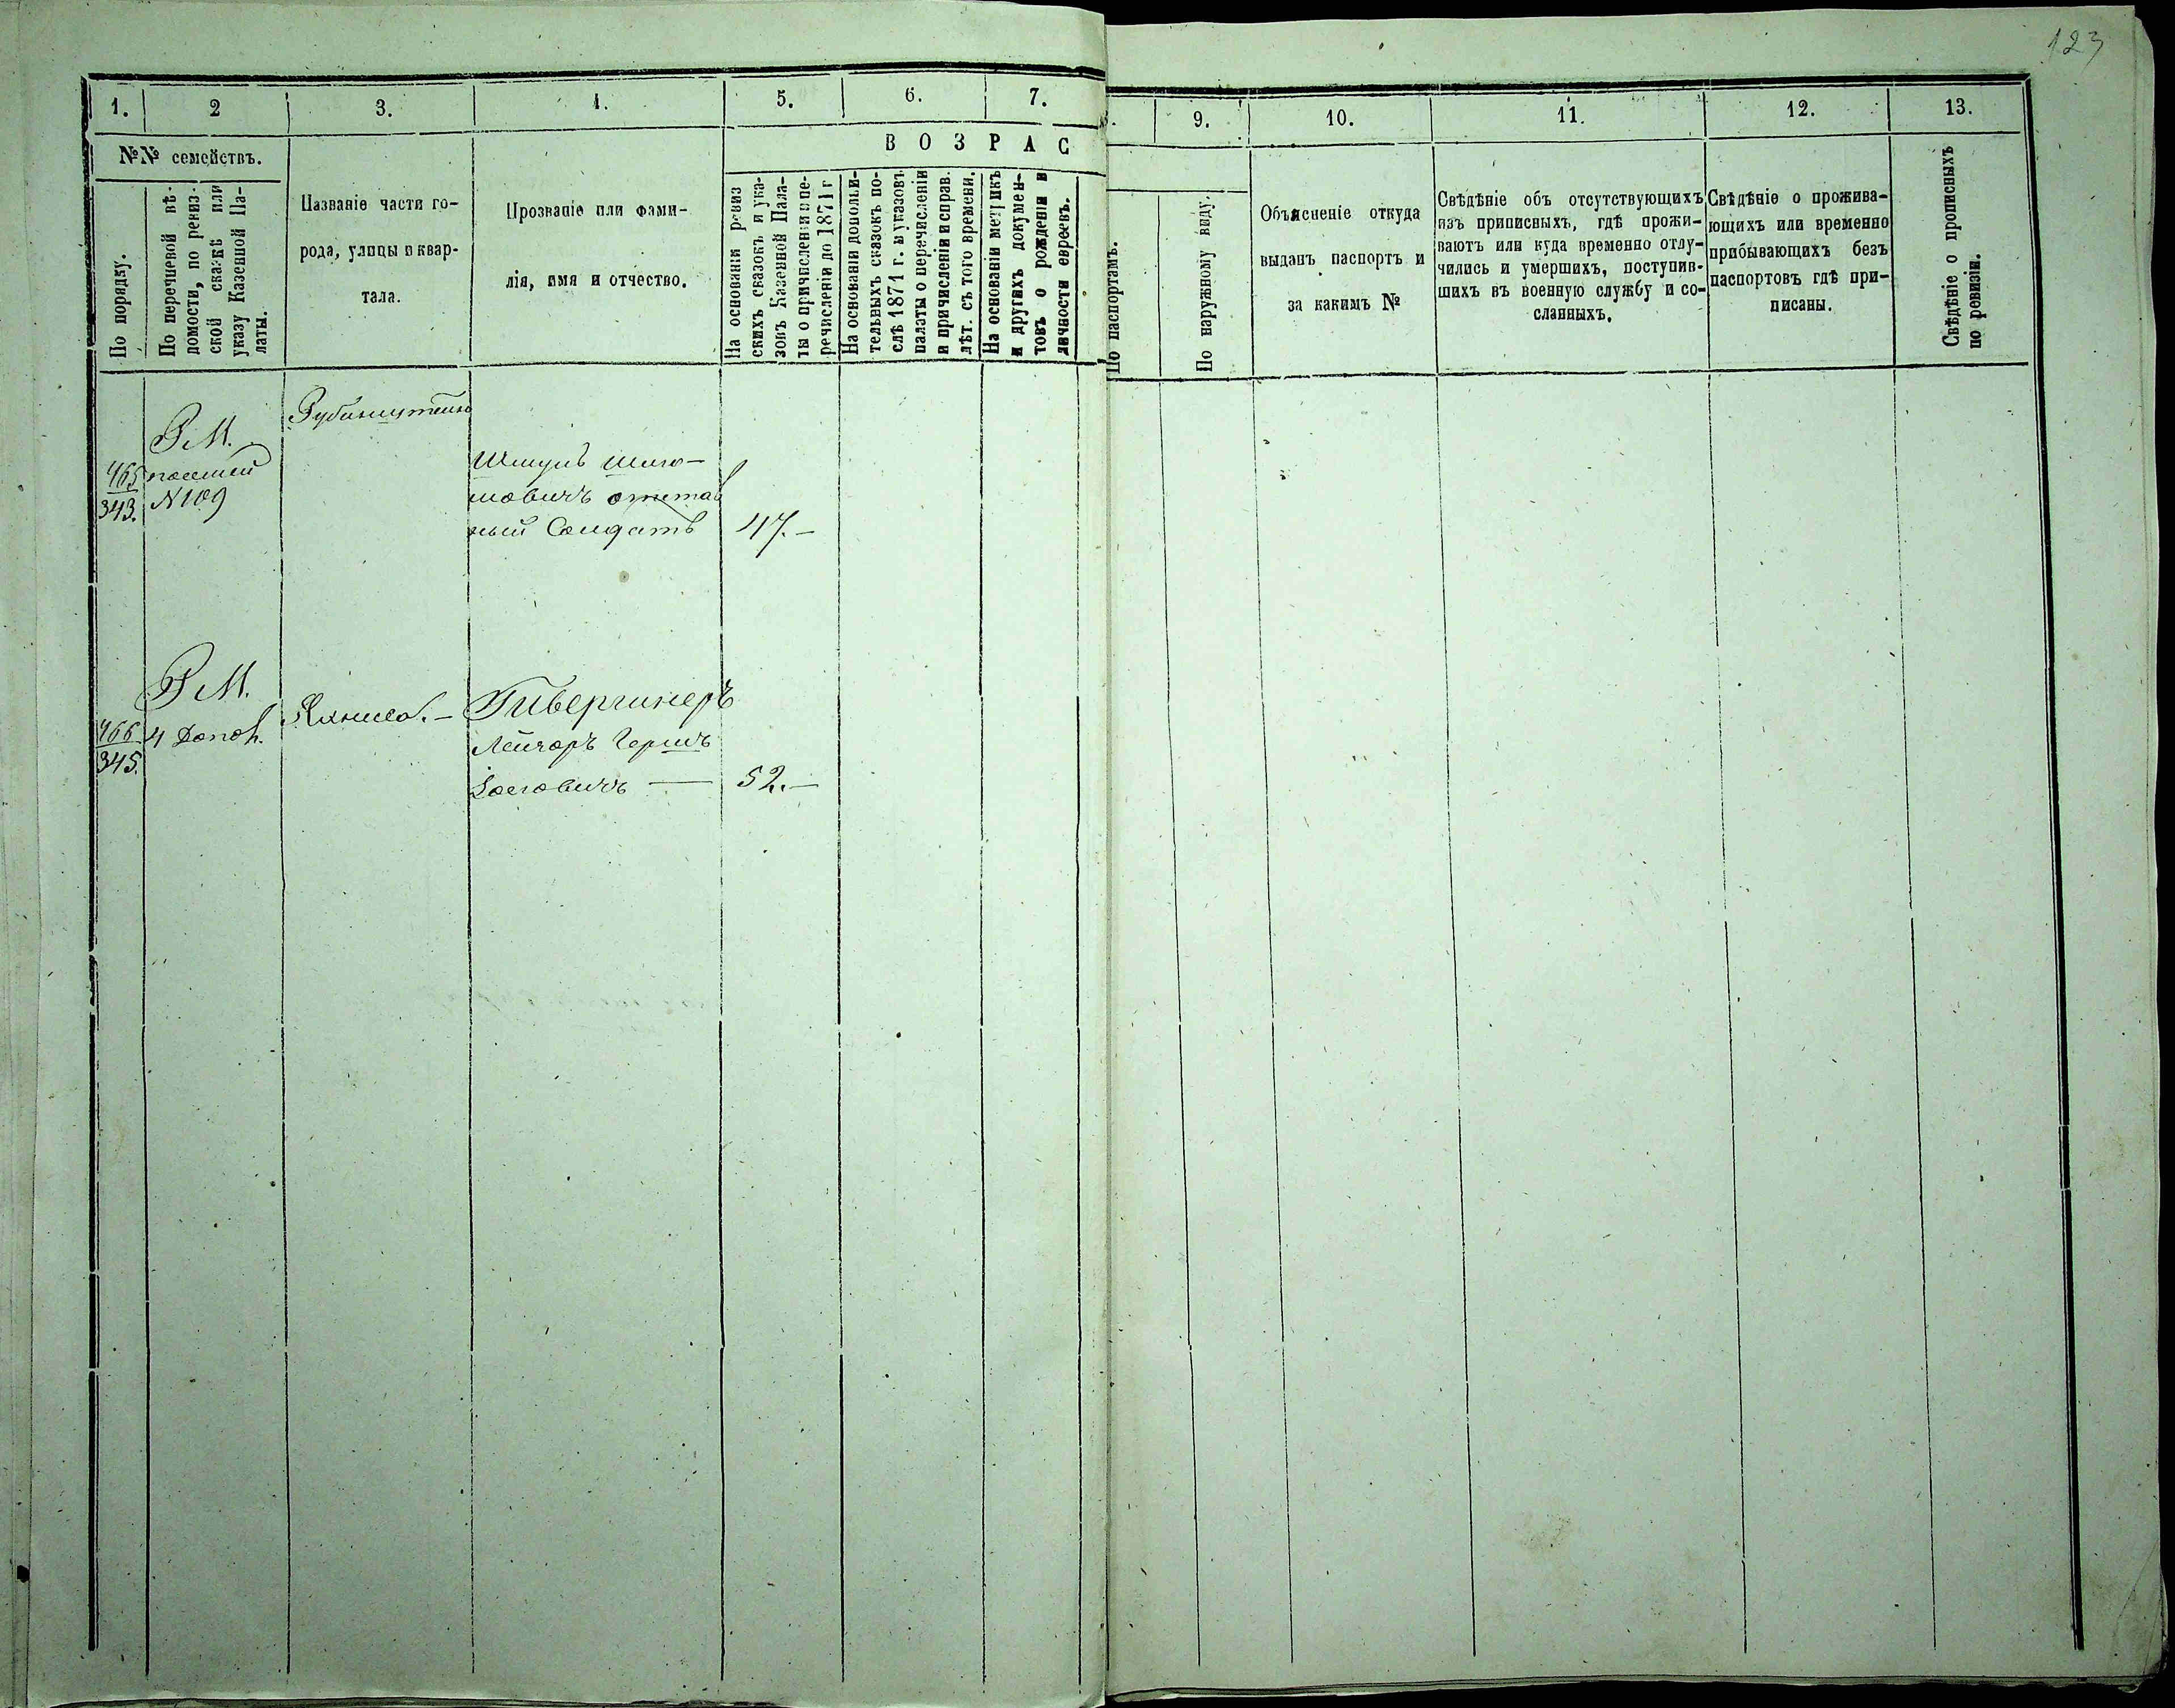 123
1. 2 3. 4. 5. 6. 7.
9. 10. 11. 12. 13.
№№ семействъ.
ВОЗРАС
По порядку.
По перечневой вѣ-
домости, по ревиз-
ской сказкѣ или
указу Казенной Па-
латы.
Названіе части го-
рода, улицы и квар-
тала.
Прозваніе или фами-
лія, имя и отчество.
На основаніи ревиз
скихъ сказокъ и ука-
зовъ Казенной Пала-
ты о причисленіи и пе-
речисленіи до 1871 г
На основаніи дополни-
тельныхъ сказокъ по-
слѣ 1871 г. и указовъ
палаты о перечисленіи
и причисленіи и справ.
лѣт. съ того времени.
На основаніи метрикъ
и другихъ докумен-
товъ о рожденіи и
личности евреевъ.
По паспортамъ.
По наружному виду.
Объясненіе откуда
выданъ паспортъ и
за какимъ №
Свѣдѣніе объ отсутствующихъ
изъ приписныхъ, гдѣ прожи-
ваютъ или куда временно отлу-
чились и умершихъ, поступив-
шихъ въ военную службу и со-
сланныхъ.
Свѣдѣніе о прожива-
ющихъ или временно
прибывающихъ безъ
паспортовъ гдѣ при-
писаны.
Свѣдѣніе о прописныхъ
по ревизіи.
Р М.
465
343.
№ 109
Рубинштейн
Шмуль
отстав
ный Солдатъ
47.-
Р М.
466
345.
4 Допол.
Гивергинеръ
Лейзоръ Гершъ
52.-